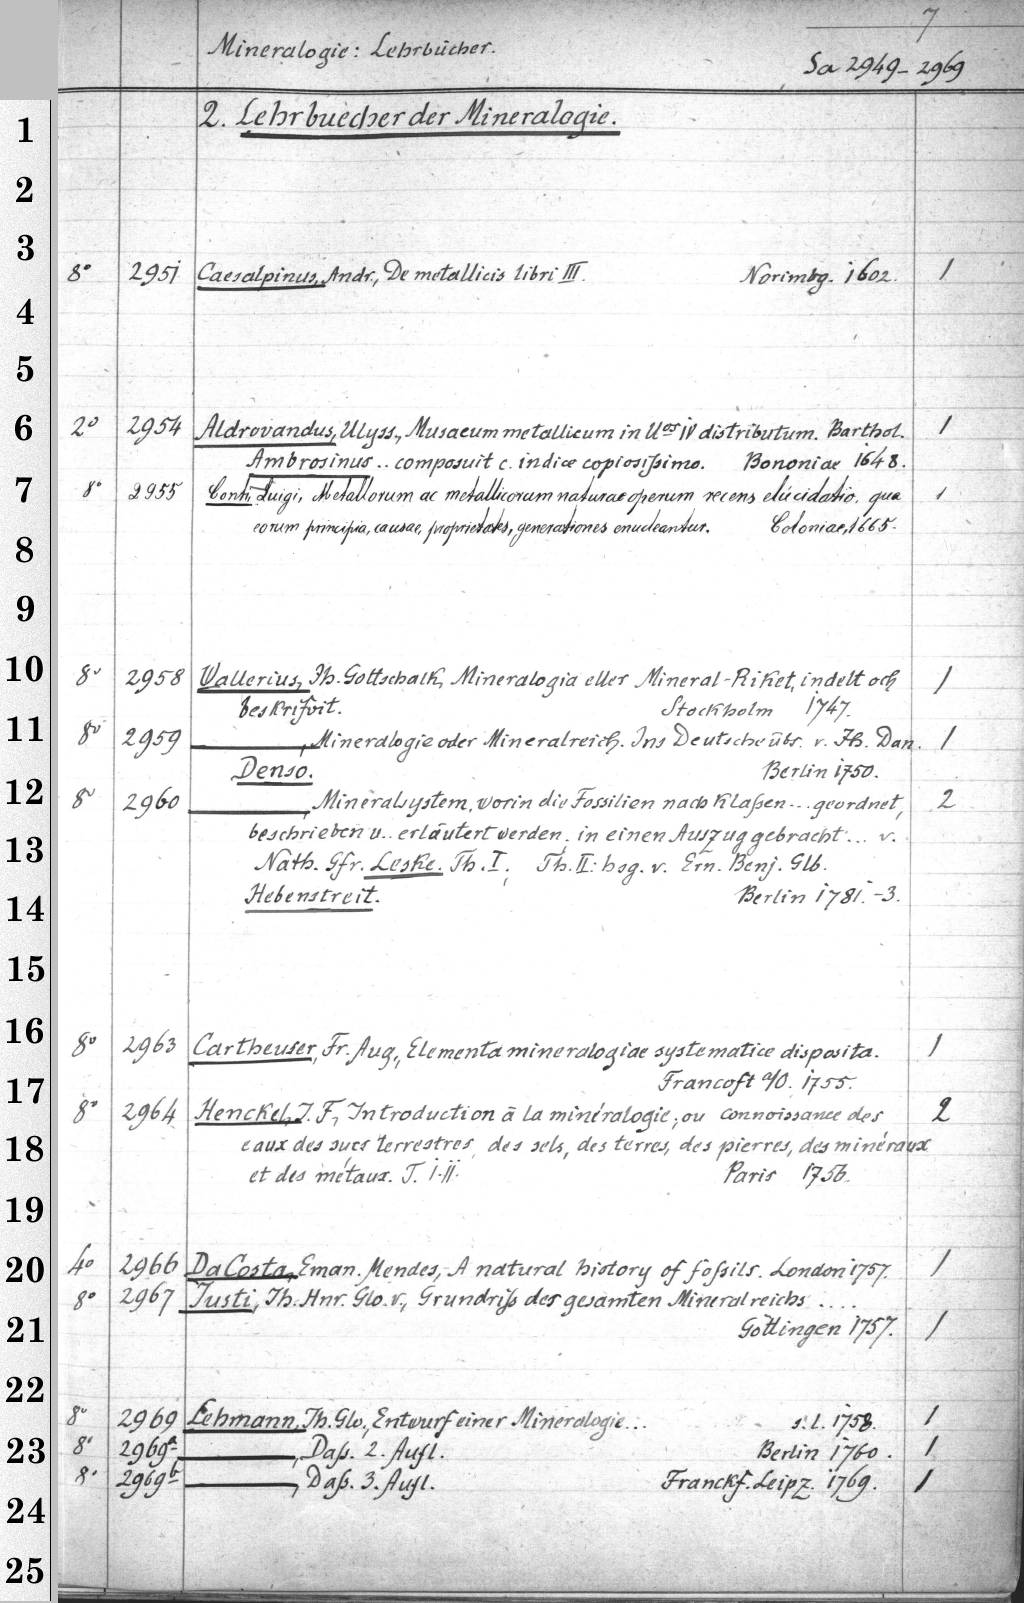 7
Mineralogie: Lehrbücher.
Sa 2949-2969
1
2. Lehrbuecher der Mineralogie.
2
3
8° 2951 Caesalpinus, Andr., De metallicis libri III. Norimbg. 1602. 1
4
5
6
2° 2954 Aldrovandus, Ulyss., Musaeum metallicum in llos IV distributum. Barthol. 1
Ambrosinus .. composuit c. indice copiosißimo. Bononiae 1648.
7
8° 2955 Conti, Luigi, Metallorum ac metallicorum naturae operum recens elucidatio, qua 1
eorum principia, causae, proprietates, generationes enucleantur. Coloniae, 1665.
8
9
10
8° 2958 Wallerius, Jh. Gottschalk, Mineralogia eller Mineral-Riket, indelt och 1
beskrifvit. Stockholm 1747.
11
8° 2959 ———, Mineralogie oder Mineralreich. Ins Deutsche übs. v. Jh. Dan. 1
Denso. Berlin 1750.
12
8° 2960 ———, Mineralsystem, worin die Fossilien nach Klaßen... geordnet, 2
beschrieben u. erläutert werden, in einen Auszug gebracht ... v.
13
Nath. Gfr. Leske. Th. I; Th. II: hsg. v. Ern. Benj. Glb.
14
Hebenstreit. Berlin 1781.-3.
15
16
8° 2963 Cartheuser, Fr. Aug., Elementa mineralogiae systematice disposita. 1
Francoft a/O. 1755.
17
8° 2964 Henckel, J. F., Introduction à la minéralogie; ou connoissance des 2
18
eaux des sucs terrestres, des sels, des terres, des pierres, des minéraux
et des métaux. T. I.II. Paris 1756.
19
20
4° 2966 Da Costa, Eman. Mendes, A natural history of foßils. London 1757. 1
8° 2967 Justi, Jh. Hnr. Glo. v., Grundriß des gesamten Mineralreichs ....
21
Göttingen 1757. 1
22
8° 2969 Lehmann, Jh. Glo., Entwurf einer Mineralogie... s.l. 1758. 1
23
8° 2969a ———, Daß. 2. Aufl. Berlin 1760. 1
8° 2969b ———, Daß. 3. Aufl. Franckf. Leipz. 1769. 1
24
25